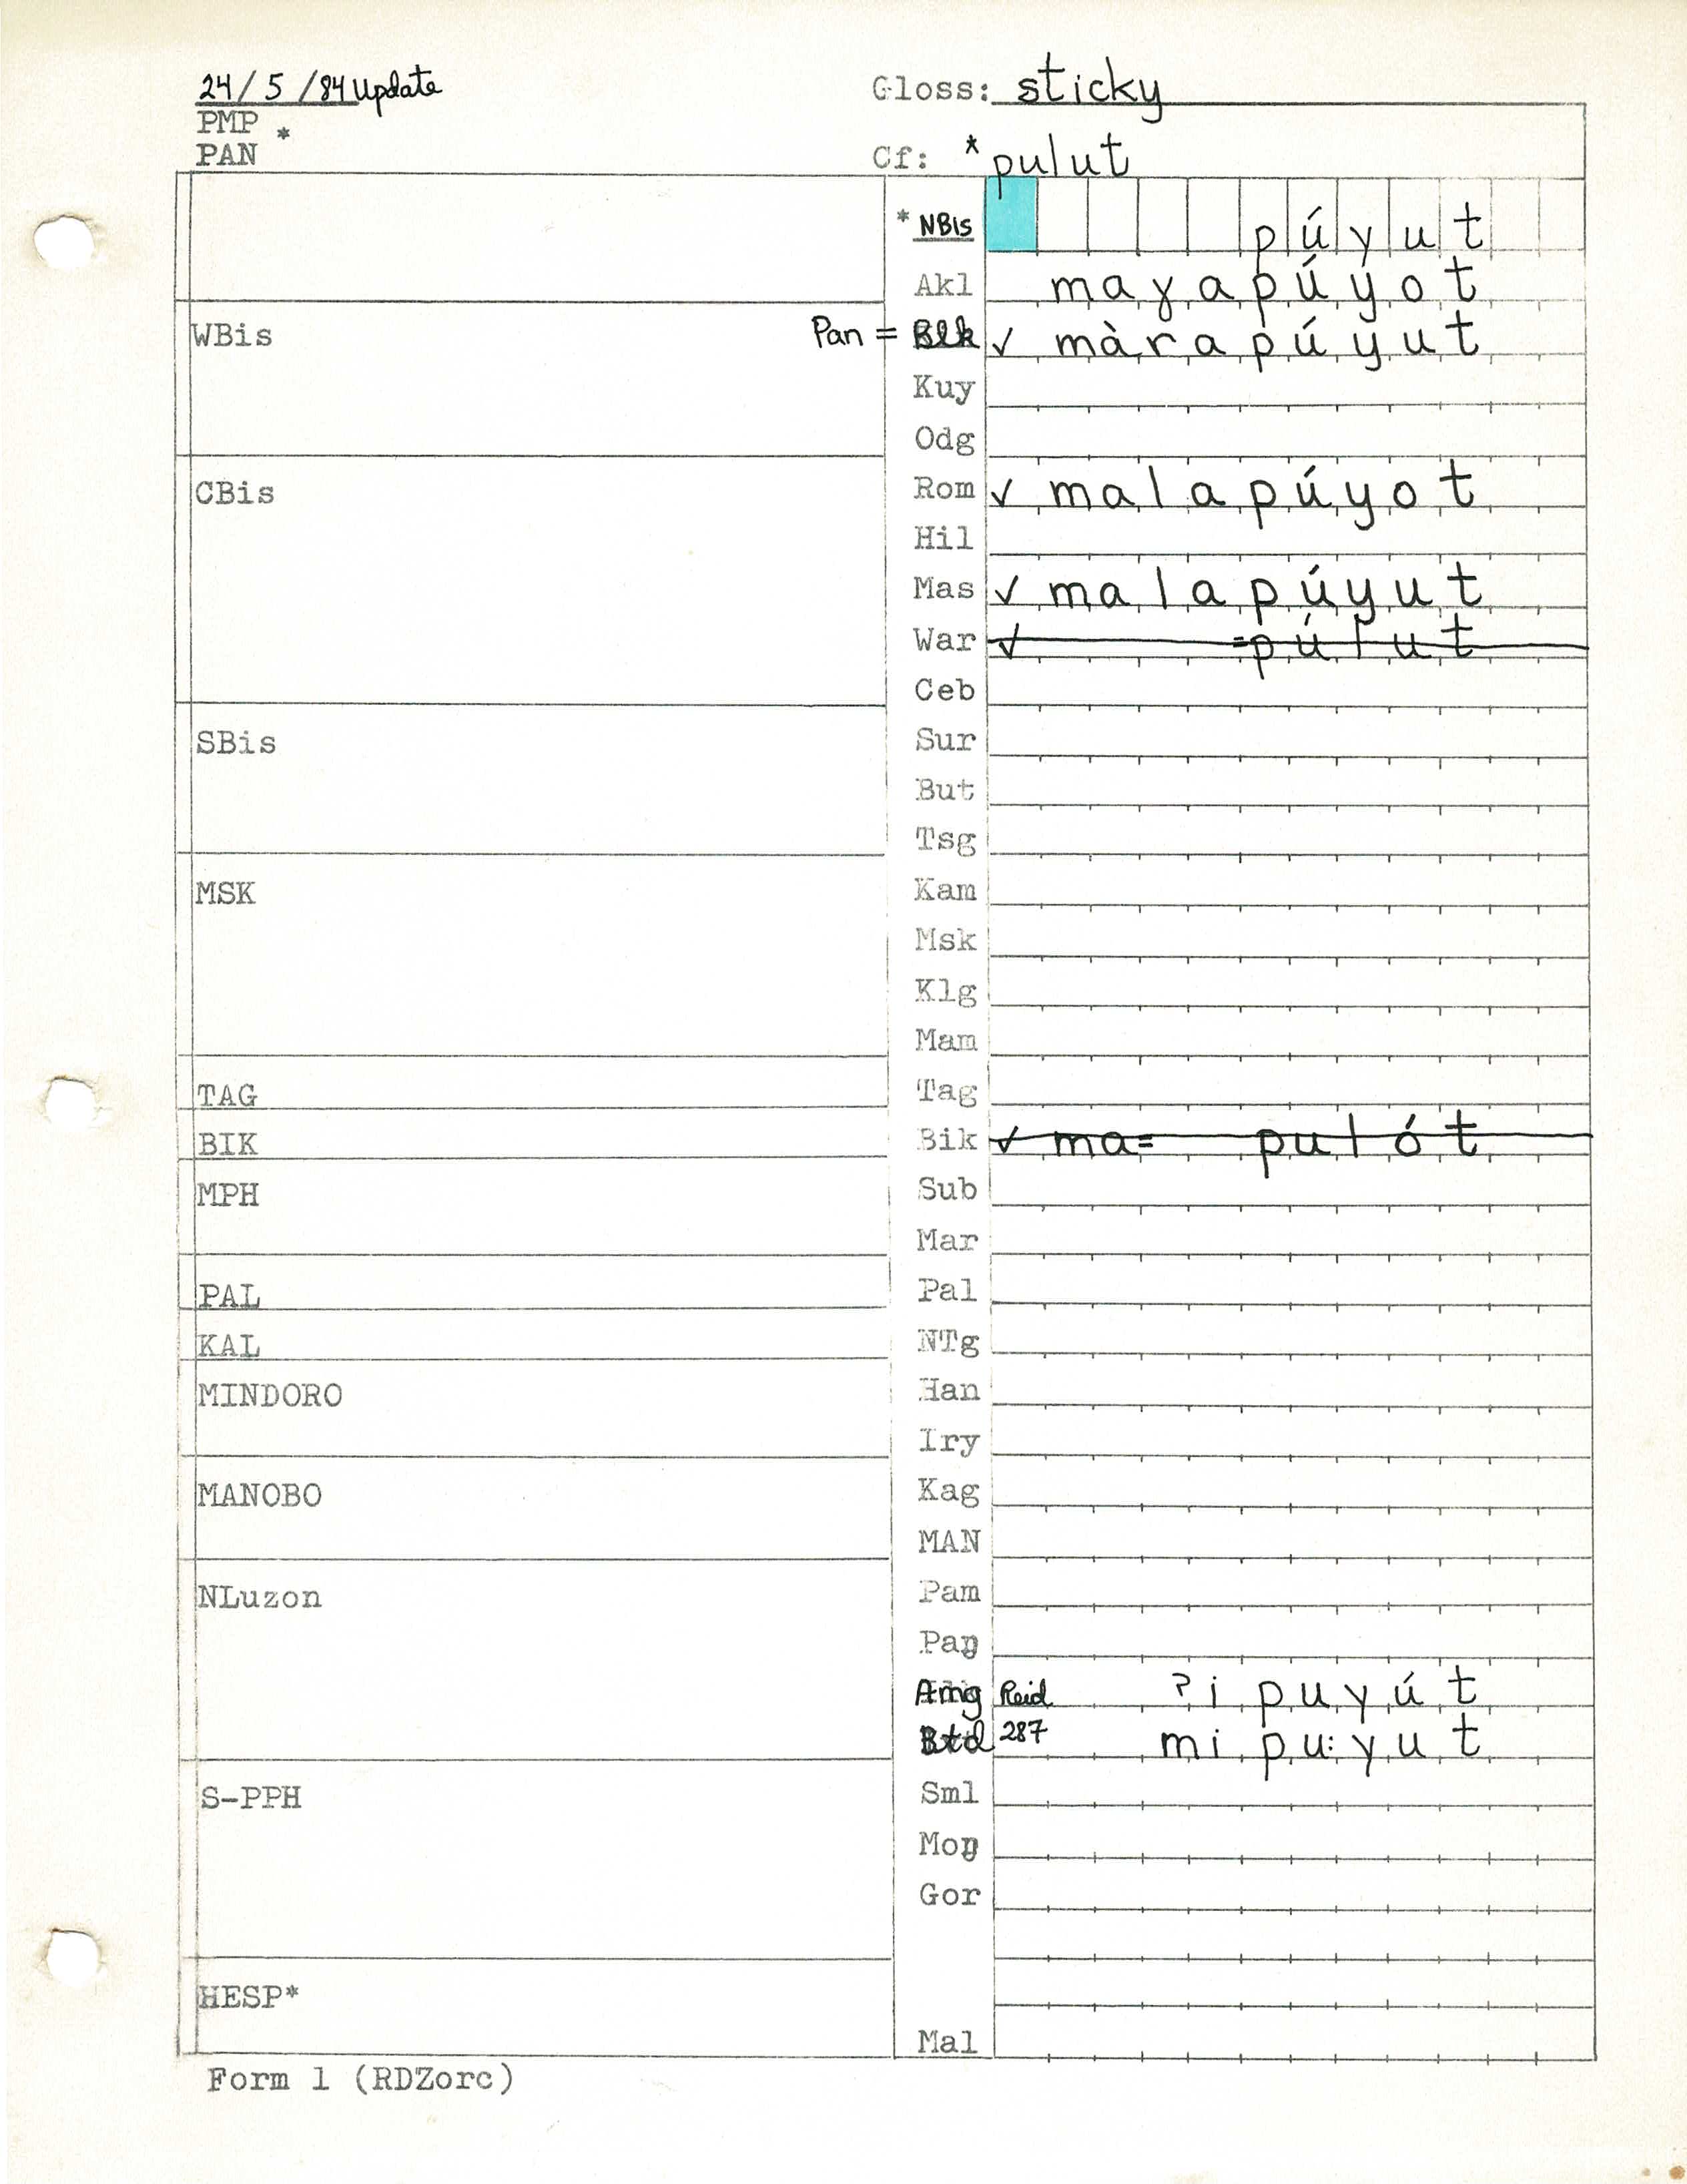 24/5/84 Update
Gloss: sticky
PMP *
PAN
Cf: *pulut
*NBis púyut
Akl mayapúyot
WBis
Pan = Blk ✓ màrapúyut
Kuy
Odg
CBis
Rom ✓ malapúyot
Hil
Mas ✓ malapúyut
War ✓ =púlut
Ceb
SBis
Sur
But
Tsg
MSK
Kam
Msk
Klg
Mam
TAG
Tag
BIK
Bik ✓ ma= pulót
MPH
Sub
Mar
PAL
Pal
KAL
NTg
MINDORO
Han
Iry
MANOBO
Kag
MAN
NLuzon
Pam
Paŋ
Amg Reid ʔipuyút
Btd 287 mipu:yut
S-PPH
Sml
Moŋ
Gor
HESP*
Mal
Form 1 (RDZorc)